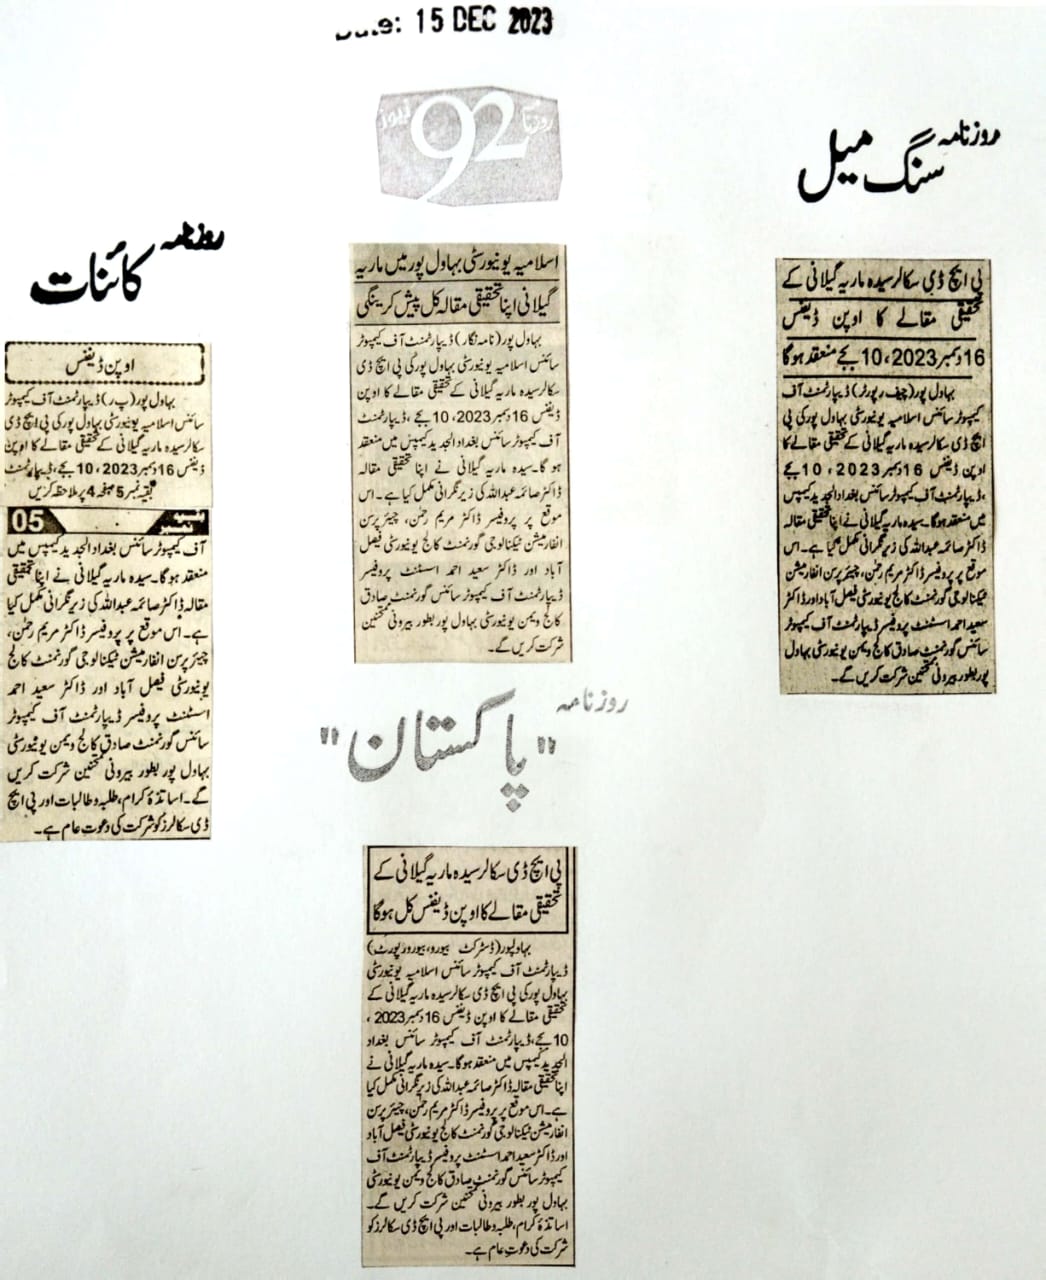 Date: 15 DEC 2023
روزنامہ 92 نیوز
روزنامہ
سنگ میل
پی ایچ ڈی سکالر سیدہ ماریہ گیلانی کے
تحقیقی مقالے کا اوپن ڈیفنس
16 دسمبر 2023، 10 بجے منعقد ہوگا
بہاول پور (چیف رپورٹر) ڈیپارٹمنٹ آف
کمپیوٹر سائنس اسلامیہ یونیورسٹی بہاول پور کی پی
ایچ ڈی سکالر سیدہ ماریہ گیلانی کے تحقیقی مقالے کا
اوپن ڈیفنس 16 دسمبر 2023، 10 بجے
،ڈیپارٹمنٹ آف کمپیوٹر سائنس بغداد الجدید کیمپس
میں منعقد ہوگا۔ سیدہ ماریہ گیلانی نے اپنا تحقیقی مقالہ
ڈاکٹر صائمہ عبداللہ کی زیر نگرانی مکمل کیا ہے۔ اس
موقع پر پروفیسر ڈاکٹر مریم رحمٰن، چیئرپرسن انفارمیشن
ٹیکنالوجی گورنمنٹ کالج یونیورسٹی فیصل آباد اور ڈاکٹر
سعید احمد اسسٹنٹ پروفیسر ڈیپارٹمنٹ آف کمپیوٹر
سائنس گورنمنٹ صادق کالج ویمن یونیورسٹی بہاول
پور بطور بیرونی ممتحنین شرکت کریں گے۔
اسلامیہ یونیورسٹی بہاول پور میں ماریہ
گیلانی اپنا تحقیقی مقالہ کل پیش کرینگی
بہاول پور (نامہ نگار) ڈیپارٹمنٹ آف کمپیوٹر
سائنس اسلامیہ یونیورسٹی بہاول پور کی پی ایچ ڈی
سکالر سیدہ ماریہ گیلانی کے تحقیقی مقالے کا اوپن
ڈیفنس 16 دسمبر 2023، 10 بجے، ڈیپارٹمنٹ
آف کمپیوٹر سائنس بغداد الجدید کیمپس میں منعقد
ہوگا۔ سیدہ ماریہ گیلانی نے اپنا تحقیقی مقالہ
ڈاکٹر صائمہ عبداللہ کی زیر نگرانی مکمل کیا ہے۔ اس
موقع پر پروفیسر ڈاکٹر مریم رحمٰن، چیئرپرسن
انفارمیشن ٹیکنالوجی گورنمنٹ کالج یونیورسٹی فیصل
آباد اور ڈاکٹر سعید احمد اسسٹنٹ پروفیسر
ڈیپارٹمنٹ آف کمپیوٹر سائنس گورنمنٹ صادق
کالج ویمن یونیورسٹی بہاول پور بطور بیرونی ممتحنین
شرکت کریں گے۔
روزنامہ
کائنات
اوپن ڈیفنس
بہاول پور (پ ر) ڈیپارٹمنٹ آف کمپیوٹر
سائنس اسلامیہ یونیورسٹی بہاول پور کی پی ایچ ڈی
سکالر سیدہ ماریہ گیلانی کے تحقیقی مقالے کا اوپن
ڈیفنس 16 دسمبر 2023، 10 بجے، ڈیپارٹمنٹ
بقیہ نمبر 5 صفحہ 4 پر ملاحظہ کریں
بقیہ نمبر 05
آف کمپیوٹر سائنس بغداد الجدید کیمپس میں
منعقد ہوگا۔ سیدہ ماریہ گیلانی نے اپنا تحقیقی
مقالہ ڈاکٹر صائمہ عبداللہ کی زیر نگرانی مکمل کیا
ہے۔ اس موقع پر پروفیسر ڈاکٹر مریم رحمٰن،
چیئرپرسن انفارمیشن ٹیکنالوجی گورنمنٹ کالج
یونیورسٹی فیصل آباد اور ڈاکٹر سعید احمد
اسسٹنٹ پروفیسر ڈیپارٹمنٹ آف کمپیوٹر
سائنس گورنمنٹ صادق کالج ویمن یونیورسٹی
بہاول پور بطور بیرونی ممتحنین شرکت کریں
گے۔ اساتذہ کرام، طلبہ و طالبات اور پی ایچ
ڈی سکالرز کو شرکت کی دعوت عام ہے۔
روزنامہ
"پاکستان"
پی ایچ ڈی سکالر سیدہ ماریہ گیلانی کے
تحقیقی مقالے کا اوپن ڈیفنس کل ہوگا
بہاولپور (ڈسٹرکٹ بیورو، بیورو رپورٹ)
ڈیپارٹمنٹ آف کمپیوٹر سائنس اسلامیہ یونیورسٹی
بہاول پور کی پی ایچ ڈی سکالر سیدہ ماریہ گیلانی کے
تحقیقی مقالے کا اوپن ڈیفنس 16 دسمبر 2023 ،
10 بجے، ڈیپارٹمنٹ آف کمپیوٹر سائنس بغداد
الجدید کیمپس میں منعقد ہوگا۔ سیدہ ماریہ گیلانی نے
اپنا تحقیقی مقالہ ڈاکٹر صائمہ عبداللہ کی زیر نگرانی مکمل کیا
ہے۔ اس موقع پر پروفیسر ڈاکٹر مریم رحمٰن، چیئرپرسن
انفارمیشن ٹیکنالوجی گورنمنٹ کالج یونیورسٹی فیصل آباد
اور ڈاکٹر سعید احمد اسسٹنٹ پروفیسر ڈیپارٹمنٹ آف
کمپیوٹر سائنس گورنمنٹ صادق کالج ویمن یونیورسٹی
بہاول پور بطور بیرونی ممتحنین شرکت کریں گے۔
اساتذہ کرام، طلبہ و طالبات اور پی ایچ ڈی سکالرز کو
شرکت کی دعوت عام ہے۔